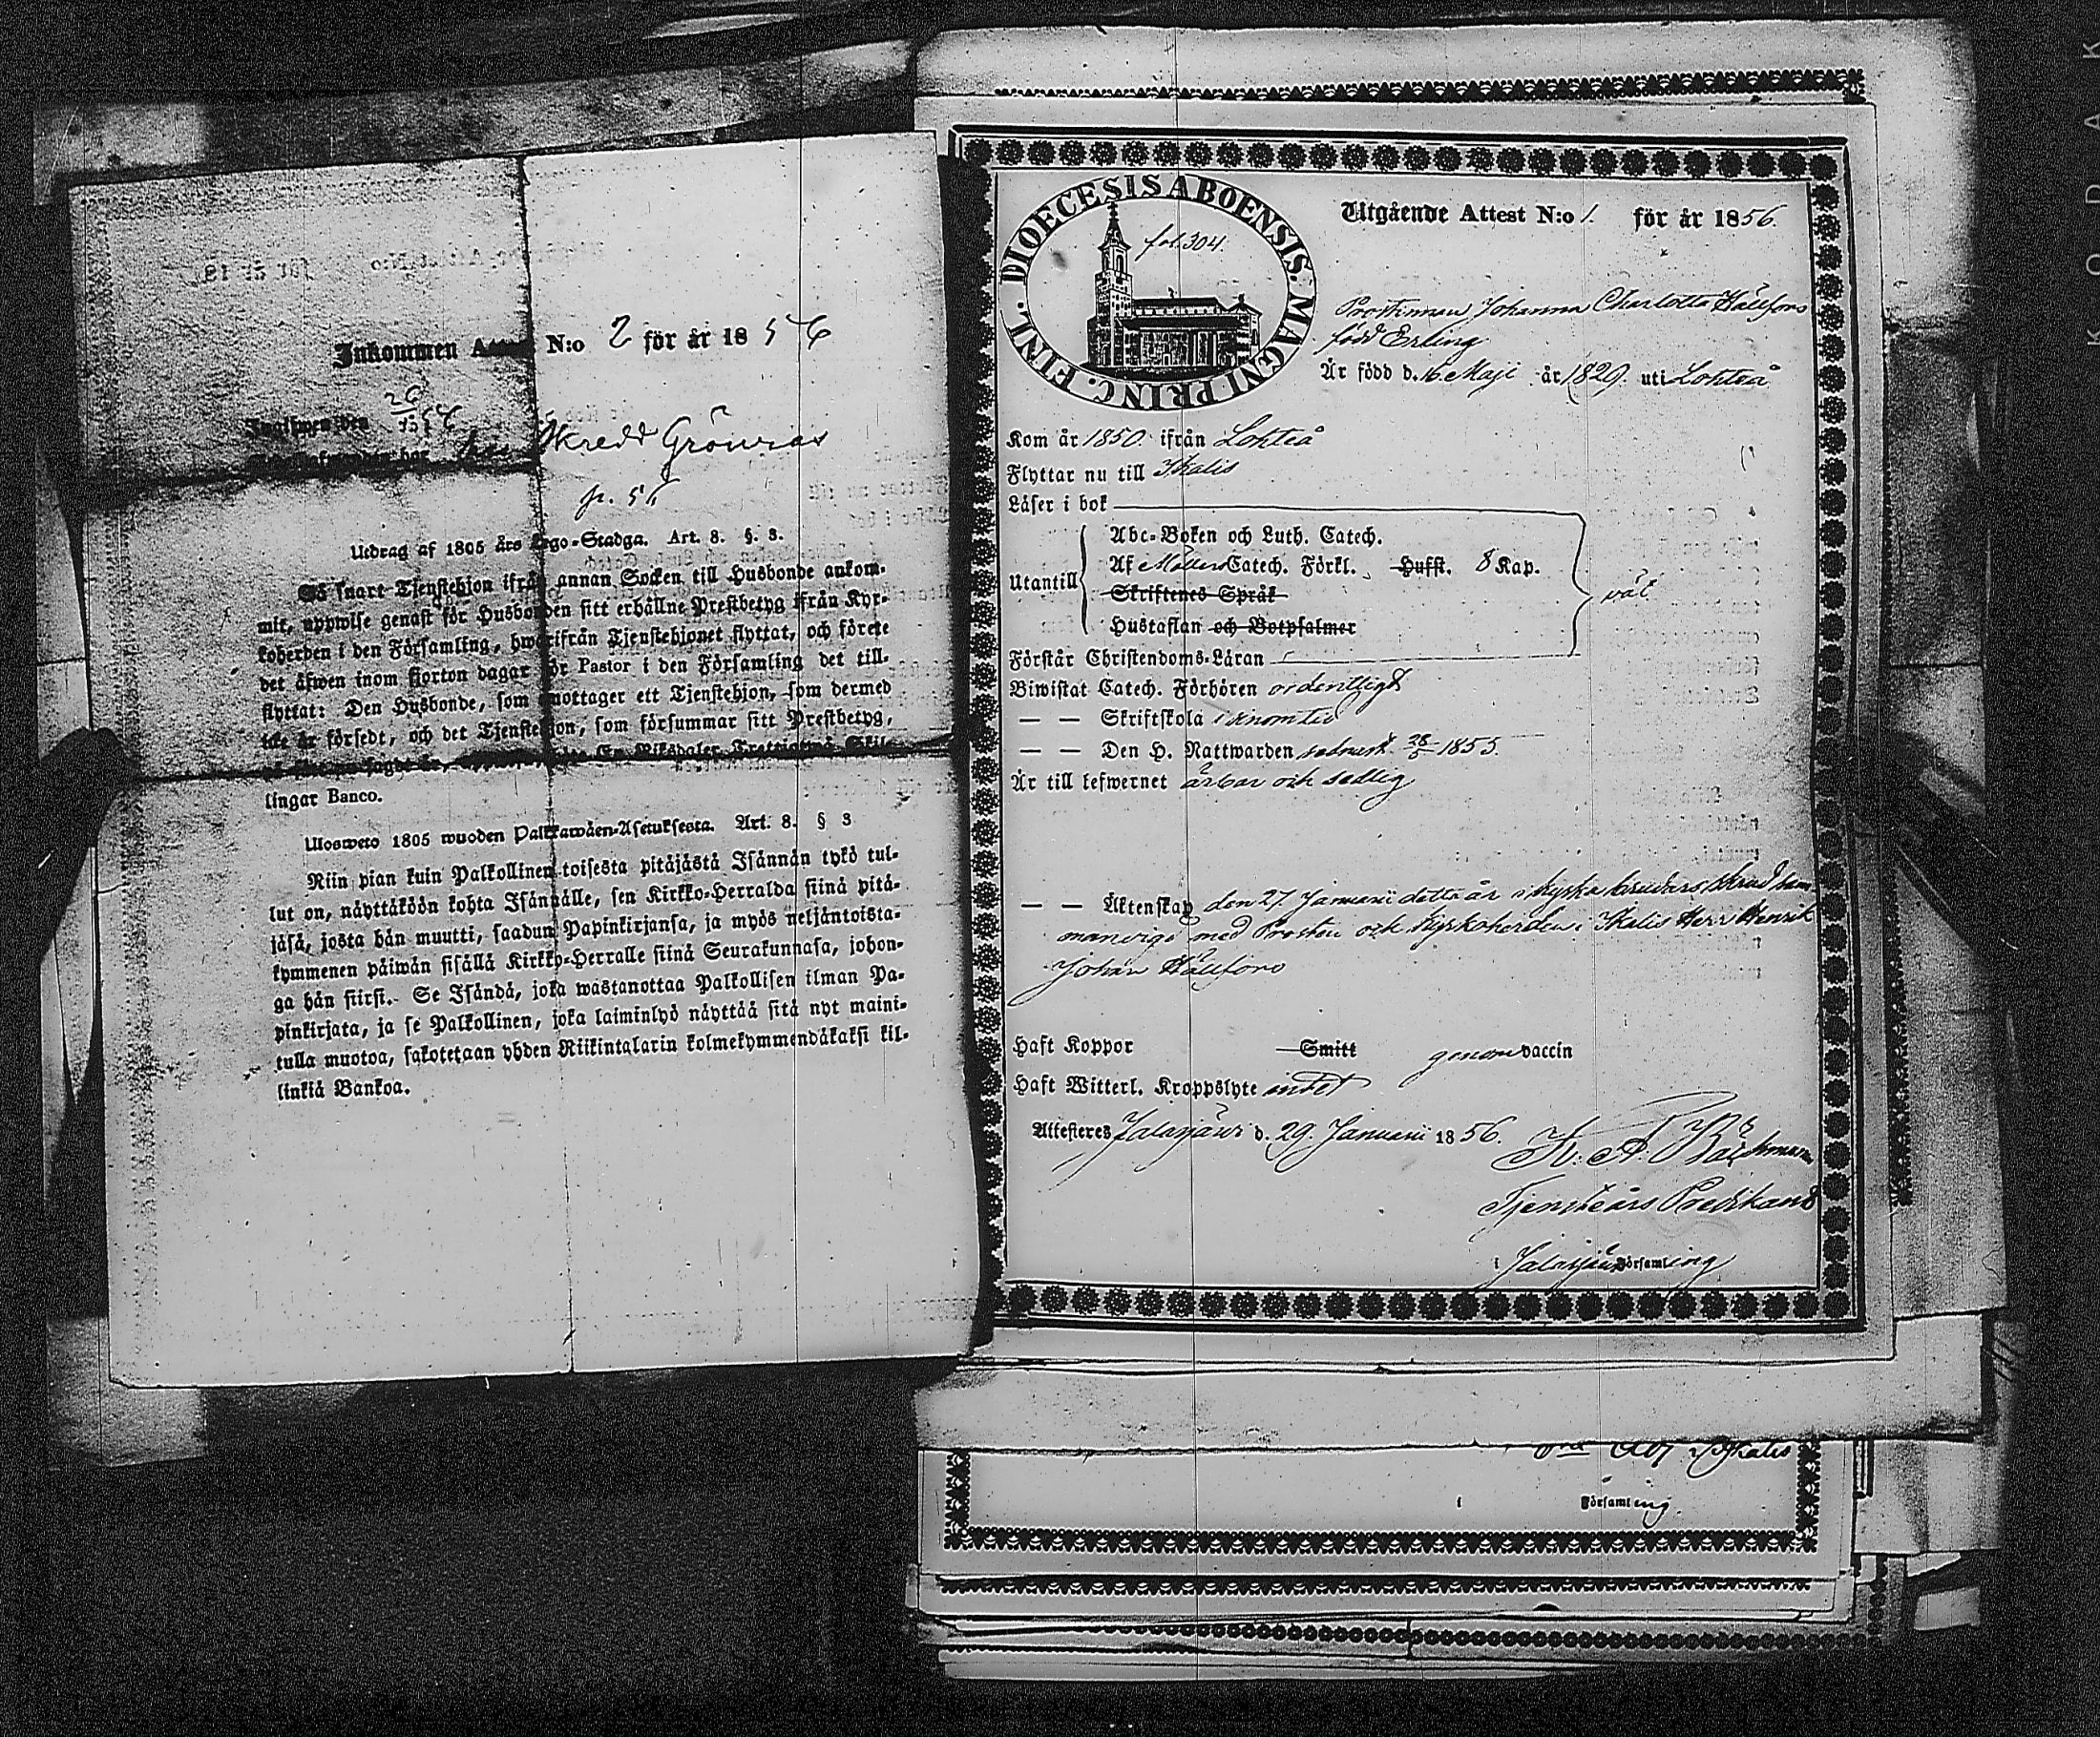 för år 18
Inkommen N:o 2 för år 1856
Skredd Grönroos
p. 56
Utdrag af 1805 års Lego-Stadga. Art. 8. §. 3.
Så snart Tjenstehjon ifrån annan Socken till Husbonde ankom-
mit, uppwise genast för Husbonden sitt erhållne Prestbetyg ifrån Kyr-
koherden i den Församling, hwarifrån Tjenstehjonet flyttat, och förete
det äfwen inom fjorton dagar för Pastor i den Församling det till-
flyttat: Den Husbonde, som emottager ett Tjenstehjon, som dermed
icke är försedt, och det Tjenstehjon, som försummar sitt Prestbetyg,
En Riksdaler Trettiotwå Skil-
lingar Banco.
Uloswето 1805 wuoden Palkkawäen-Asetuksesta. Art. 8. § 3
Niin pian kuin Palkollinen toisesta pitäjästä Isännän tykö tul-
lut on, näyttäköön kohta Isännälle, sen Kirkko-Herralda siinä pitä-
jäsä, josta hän muutti, saadun Papinkirjansa, ja myös neljäntoista-
kymmenen päiwän sisällä Kirkko-Herralle siinä Seurakunnasa, johon-
ga hän siirsi. Se Isändä, joka wastanottaa Palkollisen ilman Pa-
pinkirjata, ja se Palkollinen, joka laiminlyö näyttää sitä nyt maini-
tulla muotoa, sakotetaan yhden Riikintalarin kolmekymmendäkaksi kil-
linkiä Bankoa.
DIOECESIS ABOENSIS. MAGNI PRINC. FINL.
fol. 304.
Utgående Attest N:o 1. för år 1856.
Prostinnan Johanna Charlotta Hällfors
född Erling
Är född d. 16. Maji år 1829. uti Lohteå
Kom år 1850. ifrån Lohteå
Flyttar nu till Ikalis
Läser i bok
Utantill
Abc-Boken och Luth. Catech.
Af Möllers Catech. Förkl. Hufst. 8 Kap.
Skriftenes Språk
Hustaflan och Botpsalmer
väl
Förstår Christendoms-Läran
Biwistat Catech. Förhören ordentligt
— — Skriftskola
— — Den H. Nattwarden sednast 28/5 1855.
Är till lefwernet ärbar och sedlig
— — Äktenskap den 27 Januarii detta år i kyrka brudarskrud sam-
manvigd med Prosten och Kyrkoherden i Ikalis Herr Henrik
Johan Hällfors
Haft Koppor Smitt genom vaccin
Haft Witterl. Kroppslyte intet
Attesteres Jalasjärvi d. 29. Januarii 1856.
K. A. Bäckman
Tjensteårs Predikant
i Jalasjärvi Församling
Abf i Ikalis
i Församling
KODAK